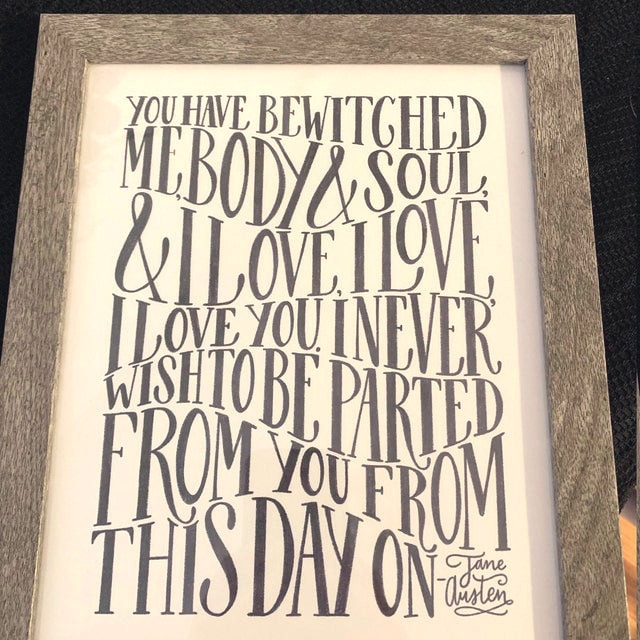 YOU HAVE BEWITCHED
ME, BODY & SOUL,
& I LOVE, I LOVE,
I LOVE YOU. I NEVER
WISH TO BE PARTED
FROM YOU FROM
THIS DAY ON
-Jane
Austen